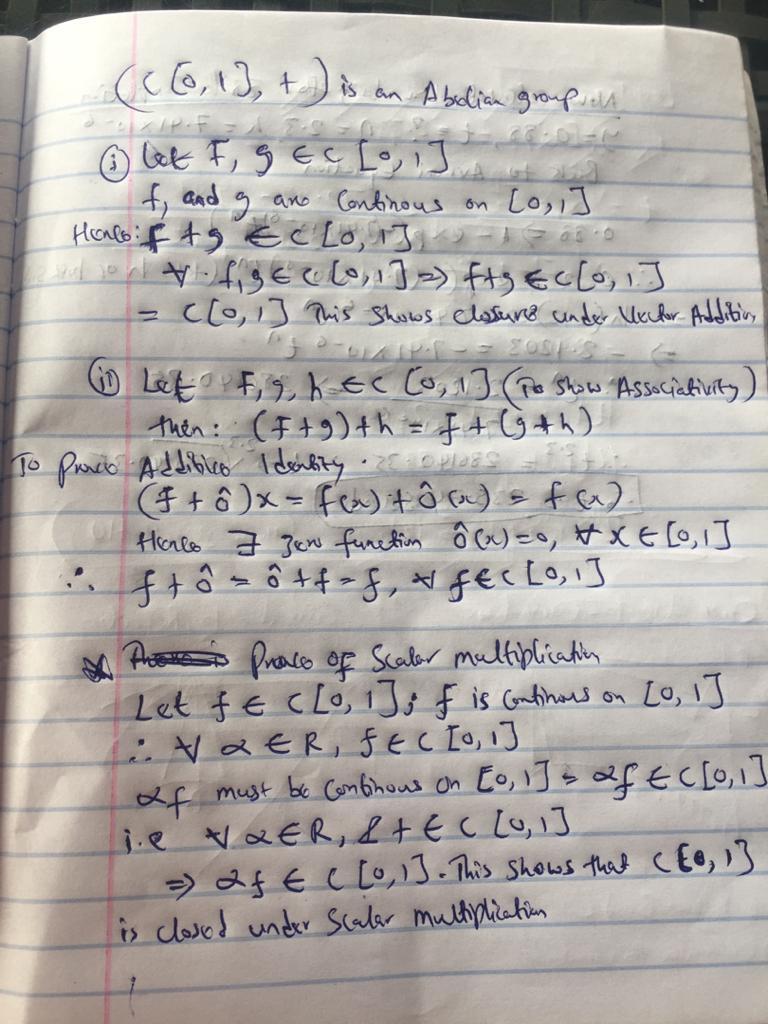 (C[0,1], +) is an Abelian group
(i) Let F, g ∈ C [0,1]
f, and g are Continous on [0,1]
Hence: f + g ∈ C [0,1]
∀ f,g ∈ C[0,1] ⇒ f+g ∈ C[0,1]
= C[0,1] This shows closure under Vector Addition
(ii) Let F, g, h ∈ C [0,1] (To show Associativity)
then: (F+g)+h = f + (g+h)
To Prove Additive Identity.
(f + ô)x = f(x) + ô(x) = f(x)
Hence ∃ zero function ô(x)=0, ∀ x ∈ [0,1]
∴ f + ô = ô + f = f, ∀ f ∈ C [0,1]
Prove of Scalar multiplication
Let f ∈ C[0,1]; f is Continous on [0,1]
∴ ∀ α ∈ R, f ∈ C [0,1]
αf must be Continous on [0,1] = αf ∈ C[0,1]
i.e ∀ α ∈ R, & f ∈ C [0,1]
⇒ αf ∈ C [0,1]. This shows that C[0,1]
is closed under Scalar multiplication